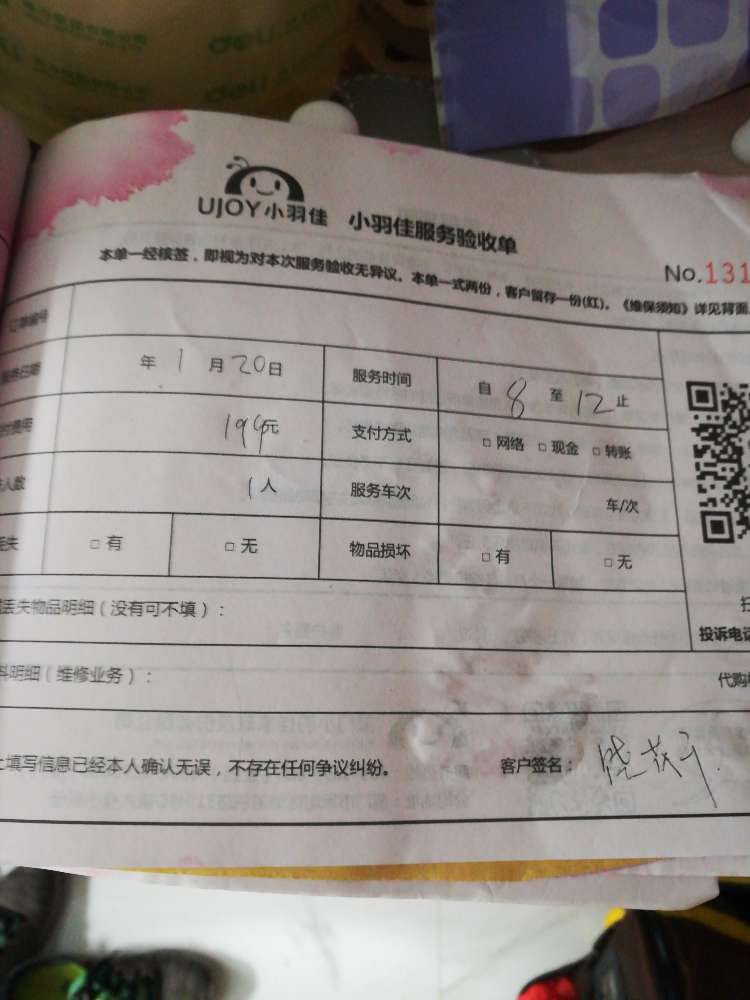 deli
UJOY小羽佳 小羽佳服务验收单
No.131
本单一经核签，即视为对本次服务验收无异议。本单一式两份，客户留存一份(红)。《维保须知》详见背面
订单编号
服务日期 年 1 月 20日 服务时间 自 8 至 12 止
费用 199元 支付方式 □ 网络 □ 现金 □ 转账
人数 1人 服务车次 车/次
丢失 □ 有 □ 无 物品损坏 □ 有 □ 无
丢失物品明细（没有可不填）：
投诉电话
料明细（维修业务）：
代购
上填写信息已经本人确认无误，不存在任何争议纠纷。 客户签名：